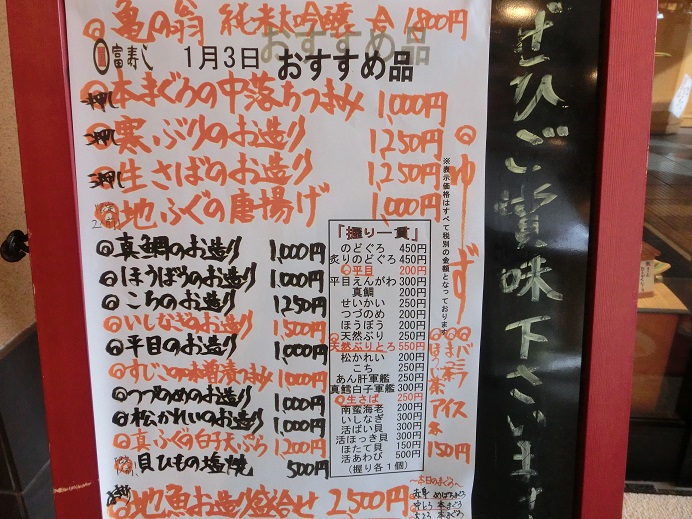 亀の翁 純米大吟醸 合 1,800円
富寿し 1月3日 おすすめ品
本まぐろの中落ちつまみ 1,000円
寒ぶりのお造り 1,250円
生さばのお造り 1,250円
地ふぐの唐揚げ 1,000円
真鯛のお造り 1,000円
ほうぼうのお造り 1,000円
こちのお造り 1,250円
いしなぎのお造り 1,500円
平目のお造り 1,000円
すじこの味噌漬つまみ 1,000円
つづめのお造り 1,000円
松かれいのお造り 1,000円
真ふぐの白子天ぷら 1,200円
貝ひもの塩焼 500円
地魚お造り盛合せ 2,500円
「握り一貫」
のどぐろ 450円
炙りのどぐろ 450円
平目 200円
平目えんがわ 300円
真鯛 200円
せいかい 250円
つづのめ 200円
ほうぼう 200円
天然ぶり 250円
天然ぶりとろ 550円
松かれい 200円
こち 250円
あん肝軍艦 250円
真鱈白子軍艦 300円
生さば 250円
南蛮海老 200円
いしなぎ 300円
活ばい貝 300円
活ほっき貝 300円
ほたて貝 150円
活あわび 500円
(握り各1個)
※表示価格はすべて税別の金額となっております
ゆず
バニラ
ごま
ほうじ茶
アイス
各150円
〜本日のまぐろ〜
赤身 めばちまぐろ
中とろ 本まぐろ
大とろ 本まぐろ
ぜひご賞味下さいませ